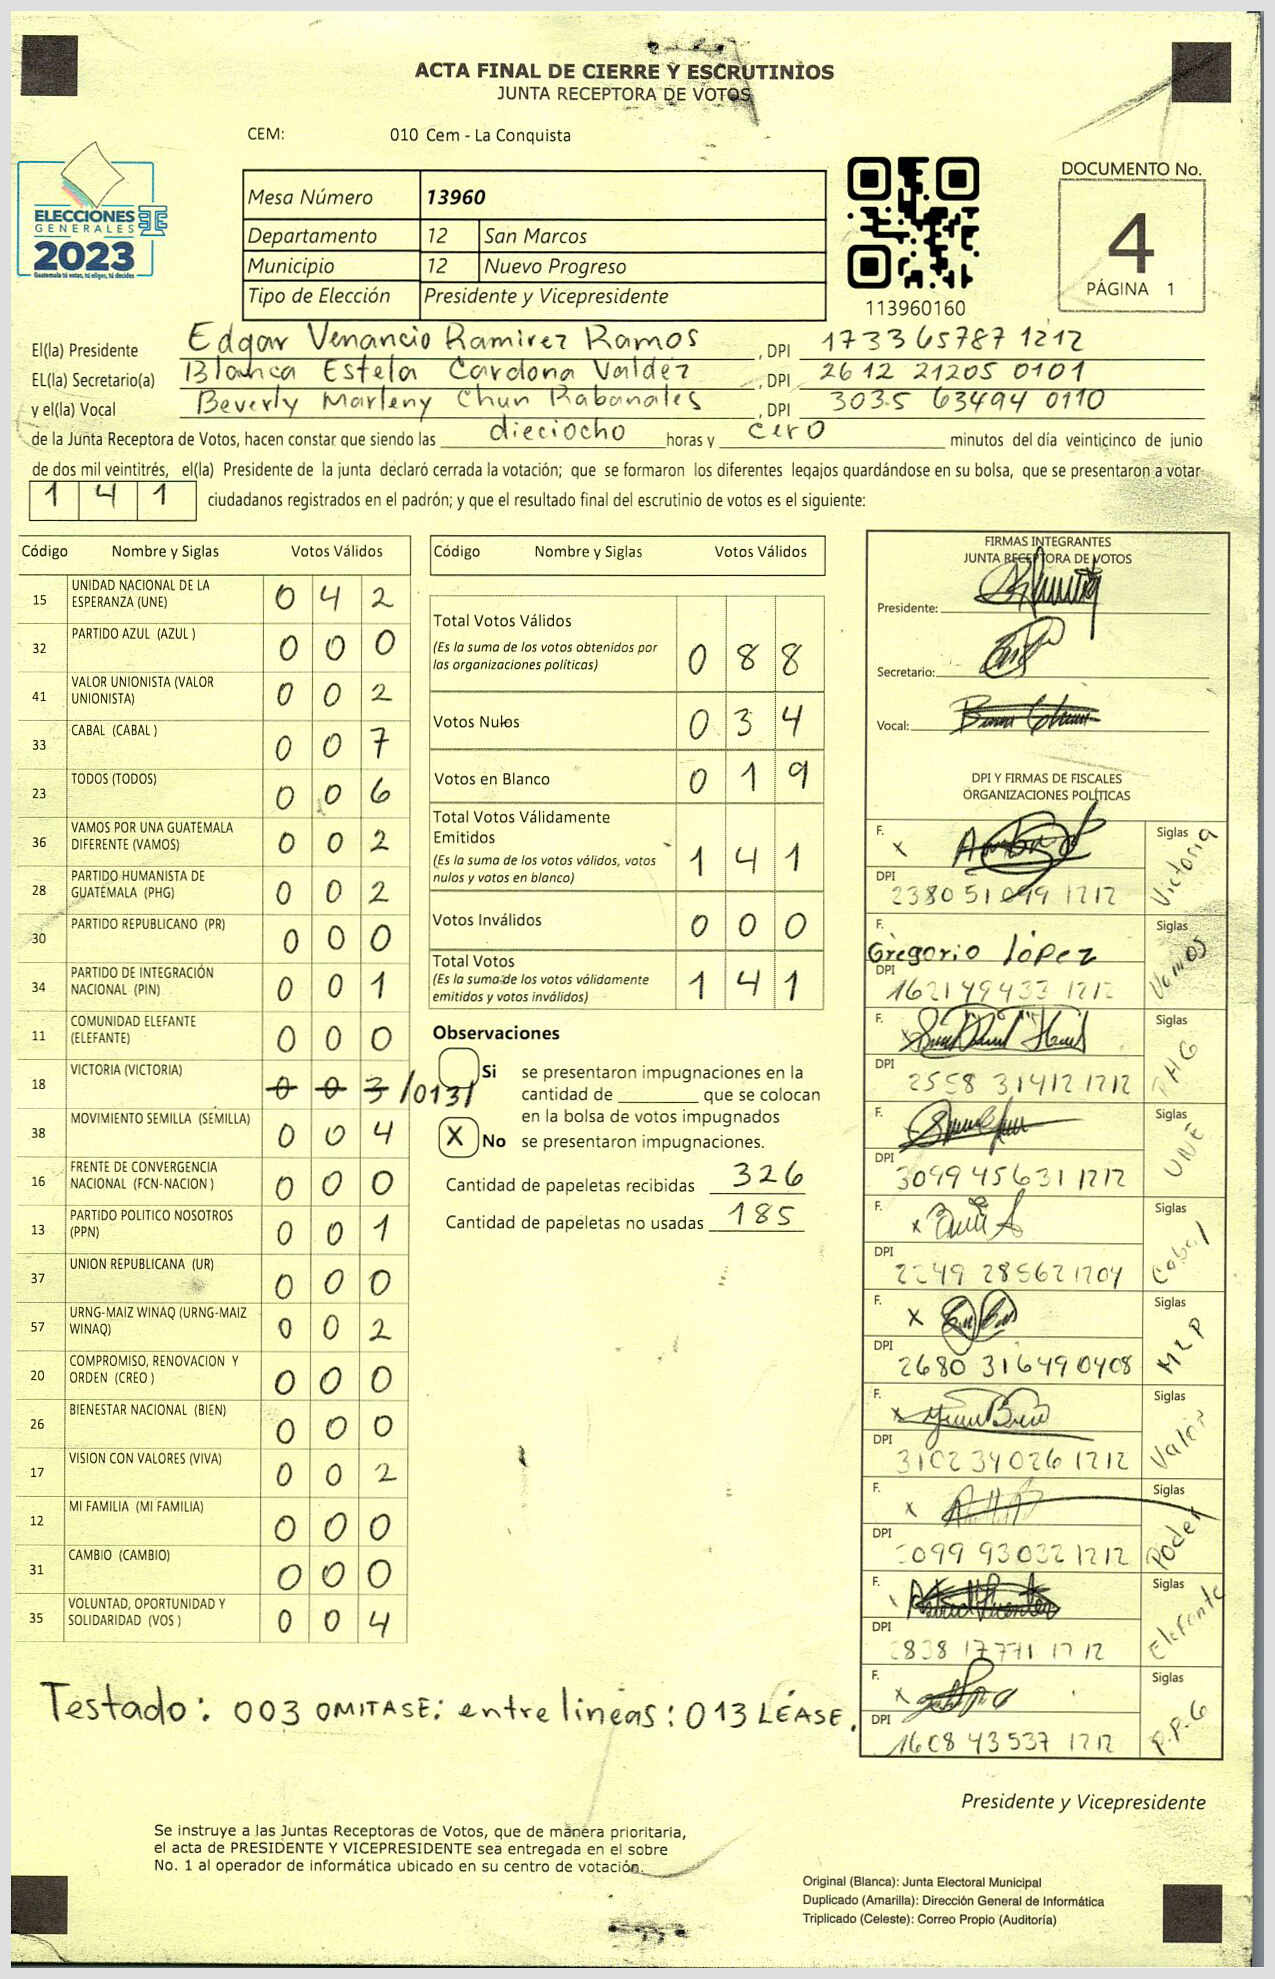 ACTA FINAL DE CIERRE Y ESCRUTINIOS
JUNTA RECEPTORA DE VOTOS
CEM: 010 Cem - La Conquista
ELECCIONES
GENERALES
2023
Guatemala tú votas, tú eliges, tú decides
Mesa Número 13960
Departamento 12 San Marcos
Municipio 12 Nuevo Progreso
Tipo de Elección Presidente y Vicepresidente
113960160
DOCUMENTO No.
4
PÁGINA 1
El(la) Presidente Edgar Venancio Ramirez Ramos , DPI 1733 65787 1212
EL(la) Secretario(a) Blanca Estela Cardona Valdez , DPI 2612 21205 0101
y el(la) Vocal Beverly Marleny Chun Rabanales , DPI 3035 63494 0110
de la Junta Receptora de Votos, hacen constar que siendo las dieciocho horas y cero minutos del día veinticinco de junio
de dos mil veintitrés, el(la) Presidente de la junta declaró cerrada la votación; que se formaron los diferentes legajos guardándose en su bolsa, que se presentaron a votar
1 4 1 ciudadanos registrados en el padrón; y que el resultado final del escrutinio de votos es el siguiente:
Código Nombre y Siglas Votos Válidos
15 UNIDAD NACIONAL DE LA ESPERANZA (UNE) 0 4 2
32 PARTIDO AZUL (AZUL ) 0 0 0
41 VALOR UNIONISTA (VALOR UNIONISTA) 0 0 2
33 CABAL (CABAL ) 0 0 7
23 TODOS (TODOS) 0 0 6
36 VAMOS POR UNA GUATEMALA DIFERENTE (VAMOS) 0 0 2
28 PARTIDO HUMANISTA DE GUATEMALA (PHG) 0 0 2
30 PARTIDO REPUBLICANO (PR) 0 0 0
34 PARTIDO DE INTEGRACIÓN NACIONAL (PIN) 0 0 1
11 COMUNIDAD ELEFANTE (ELEFANTE) 0 0 0
18 VICTORIA (VICTORIA) 0 0 3 /013/
38 MOVIMIENTO SEMILLA (SEMILLA) 0 0 4
16 FRENTE DE CONVERGENCIA NACIONAL (FCN-NACION ) 0 0 0
13 PARTIDO POLITICO NOSOTROS (PPN) 0 0 1
37 UNION REPUBLICANA (UR) 0 0 0
57 URNG-MAIZ WINAQ (URNG-MAIZ WINAQ) 0 0 2
20 COMPROMISO, RENOVACION Y ORDEN (CREO ) 0 0 0
26 BIENESTAR NACIONAL (BIEN) 0 0 0
17 VISION CON VALORES (VIVA) 0 0 2
12 MI FAMILIA (MI FAMILIA) 0 0 0
31 CAMBIO (CAMBIO) 0 0 0
35 VOLUNTAD, OPORTUNIDAD Y SOLIDARIDAD (VOS ) 0 0 4
Código Nombre y Siglas Votos Válidos
Total Votos Válidos
(Es la suma de los votos obtenidos por las organizaciones políticas) 0 8 8
Votos Nulos 0 3 4
Votos en Blanco 0 1 9
Total Votos Válidamente Emitidos
(Es la suma de los votos válidos, votos nulos y votos en blanco) 1 4 1
Votos Inválidos 0 0 0
Total Votos
(Es la suma de los votos válidamente emitidos y votos inválidos) 1 4 1
Observaciones
Si se presentaron impugnaciones en la
cantidad de ________ que se colocan
en la bolsa de votos impugnados
X No se presentaron impugnaciones.
Cantidad de papeletas recibidas 326
Cantidad de papeletas no usadas 185
FIRMAS INTEGRANTES
JUNTA RECEPTORA DE VOTOS
Presidente:
Secretario:
Vocal:
DPI Y FIRMAS DE FISCALES
ORGANIZACIONES POLÍTICAS
F. x Siglas Victoria
DPI 2380 51099 1212
F. Gregorio López Siglas Vamos
DPI 1621 99433 1212
F. x Siglas PHG
DPI 2558 31412 1212
F. Siglas UNE
DPI 3099 45631 1212
F. x Siglas Cabal
DPI 2249 28562 1204
F. x Siglas MLP
DPI 2680 31649 0408
F. x Siglas Valor
DPI 3102 34026 1212
F. x Siglas Poder
DPI 3099 93032 1212
F. Siglas Elefante
DPI 2838 17771 1212
F. x Siglas P.P.G
DPI 1608 43537 1212
Testado: 003 OMITASE: entre lineas: 013 LÉASE.
Presidente y Vicepresidente
Se instruye a las Juntas Receptoras de Votos, que de manera prioritaria,
el acta de PRESIDENTE Y VICEPRESIDENTE sea entregada en el sobre
No. 1 al operador de informática ubicado en su centro de votación.
Original (Blanca): Junta Electoral Municipal
Duplicado (Amarilla): Dirección General de Informática
Triplicado (Celeste): Correo Propio (Auditoría)